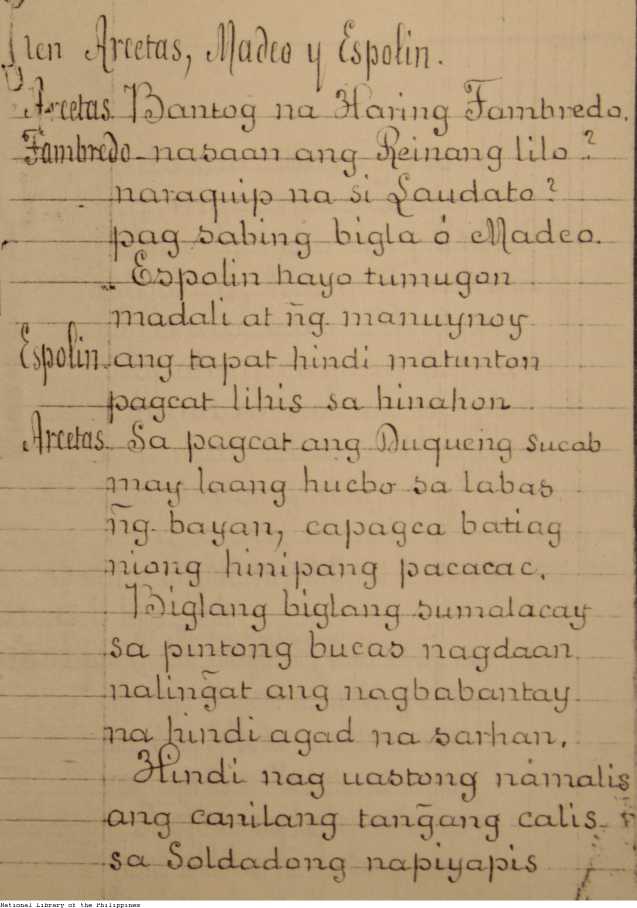 Arcetas, Madeo y Espolin.
Arcetas. Bantog na Haring Fambredo.
Fambredo - nasaan ang Reinang lilo?
naraquip na si Laudato?
pag sabing bigla ó Madeo.
Espolin hayo tumugon
madali at ñg. manuynoy
Espolin. ang tapat hindi matunton
pagcat lihis sa hinahon
Arcetas. Sa pagcat ang Duqueng sucab
may laang hucbo sa labas
ñg. bayan, capagca batiag
niong hinipang pacacac.
Biglang biglang sumalacay
sa pintong bucas nagdaan
naling̃at ang nagbabantay
na hindi agad na sarhan.
Hindi nag uastong námalis
ang canilang tang̃ang calis.
sa Soldadong napiyapis
National Library of the Philippines